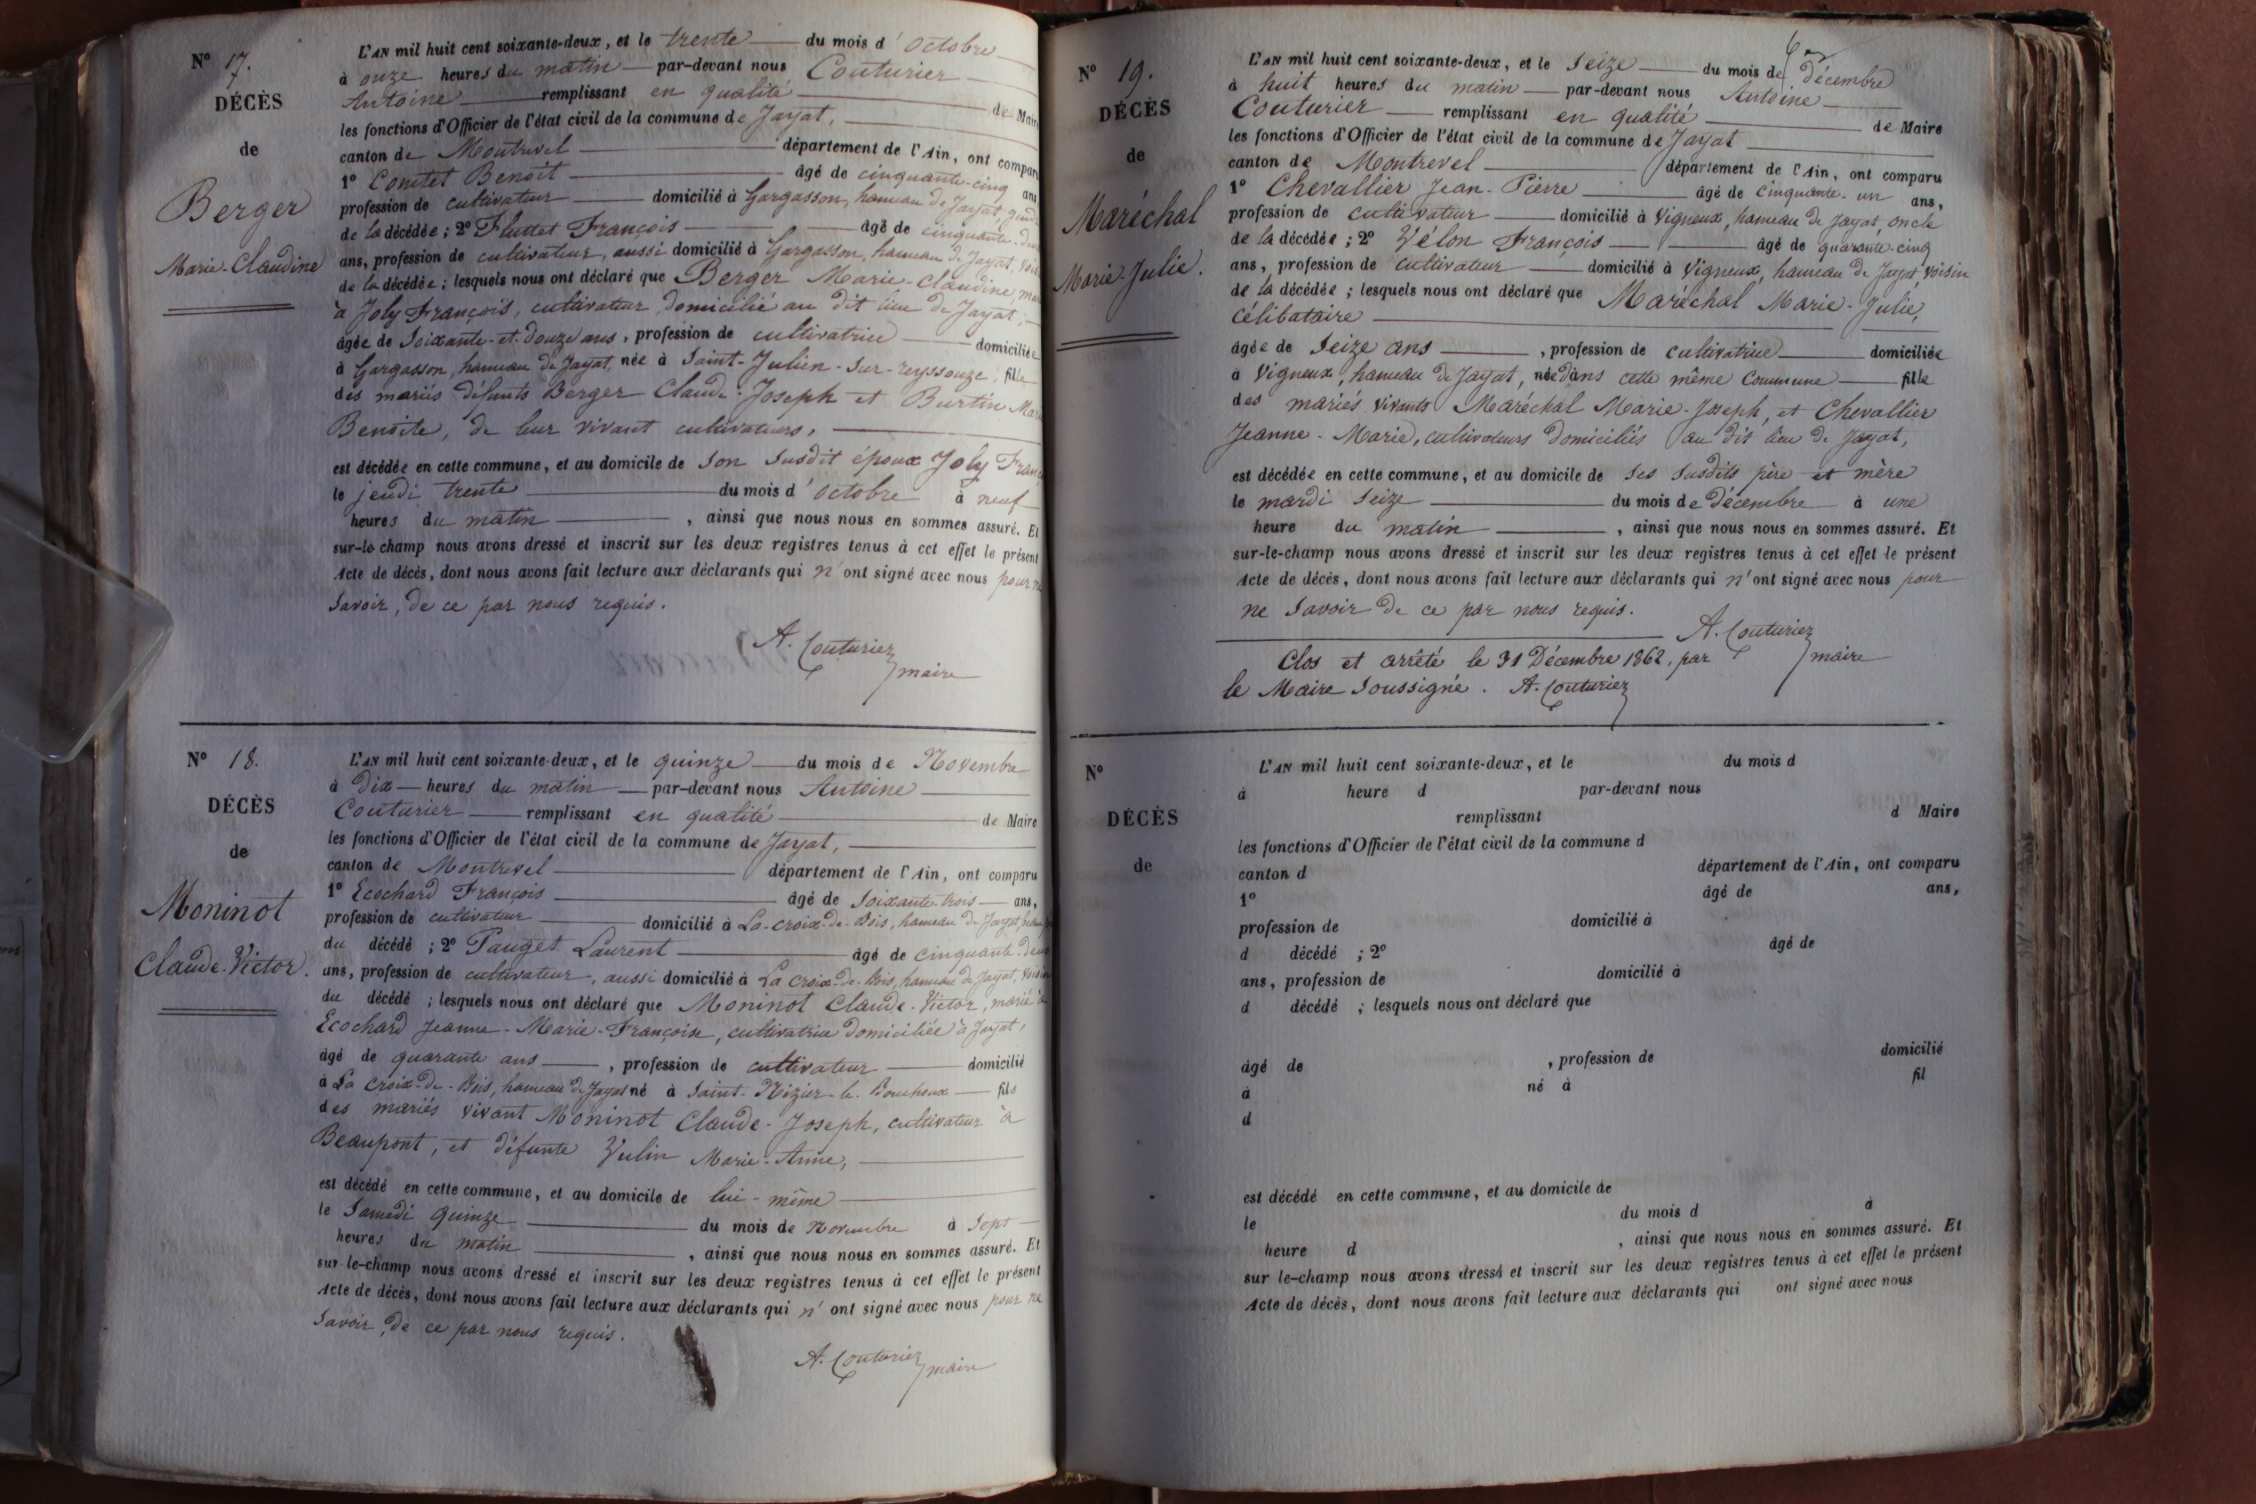 N° 17.
DÉCÈS
de
Berger
Marie-Claudine
L'AN mil huit cent soixante-deux, et le trente du mois d'octobre
à onze heures du matin par-devant nous Couturier
Antoine remplissant en qualité de Maire
les fonctions d'Officier de l'état civil de la commune de Jayat,
canton de Montrevel département de l'Ain, ont comparu
1° Comtet Benoit âgé de cinquante-cinq ans
profession de cultivateur domicilié à Gargasson, hameau de Jayat,
de la décédée ; 2° Fluttet François âgé de cinquante-
ans, profession de cultivateur, aussi domicilié à Gargasson, hameau de Jayat,
de la décédée ; lesquels nous ont déclaré que Berger Marie-Claudine,
à Joly François, cultivateur domicilié au dit lieu de Jayat,
âgée de soixante-et-douze ans, profession de cultivatrice domiciliée
à Gargasson, hameau de Jayat, née à Saint-Julien-sur-reyssouze, fille
des mariés défunts Berger Claude-Joseph et Burtin
Benoite, de leur vivant cultivateurs,
est décédée en cette commune, et au domicile de son susdit époux Joly
le jeudi trente du mois d'octobre à neuf
heures du matin, ainsi que nous nous en sommes assuré. Et
sur-le-champ nous avons dressé et inscrit sur les deux registres tenus à cet effet le présent
Acte de décès, dont nous avons fait lecture aux déclarants qui n'ont signé avec nous pour ne
savoir, de ce par nous requis.
A. Couturier
maire
N° 18.
DÉCÈS
de
Moninot
Claude-Victor.
L'AN mil huit cent soixante-deux, et le quinze du mois de Novembre
à dix heures du matin par-devant nous Antoine
Couturier remplissant en qualité de Maire
les fonctions d'Officier de l'état civil de la commune de Jayat,
canton de Montrevel département de l'Ain, ont comparu
1° Ecochard François âgé de soixante-trois ans,
profession de cultivateur domicilié à La-croix-de-Bois, hameau de Jayat,
du décédé ; 2° Pauget Laurent âgé de cinquante-deux
ans, profession de cultivateur, aussi domicilié à La croix-de-Bois, hameau de Jayat, voisin
du décédé ; lesquels nous ont déclaré que Moninot Claude-Victor, marié à
Ecochard Jeanne-Marie-Françoise, cultivatrice domiciliée à Jayat,
âgé de quarante ans, profession de cultivateur domicilié
à La croix-de-Bois, hameau de Jayat né à Saint-Nizier-le-Bouchoux fils
des mariés vivant Moninot Claude-Joseph, cultivateur à
Beaupont, et défunte Vulin Marie-Anne,
est décédé en cette commune, et au domicile de lui-même
le Samedi quinze du mois de Novembre à sept
heures du matin, ainsi que nous nous en sommes assuré. Et
sur-le-champ nous avons dressé et inscrit sur les deux registres tenus à cet effet le présent
Acte de décès, dont nous avons fait lecture aux déclarants qui n'ont signé avec nous pour ne
savoir, de ce par nous requis.
A. Couturier
maire
N° 19.
DÉCÈS
de
Maréchal
Marie-Julie.
L'AN mil huit cent soixante-deux, et le seize du mois de décembre
à huit heures du matin par-devant nous Antoine
Couturier remplissant en qualité de Maire
les fonctions d'Officier de l'état civil de la commune de Jayat
canton de Montrevel département de l'Ain, ont comparu
1° Chevallier Jean-Pierre âgé de cinquante-un ans,
profession de cultivateur domicilié à Vigneux, hameau de Jayat, oncle
de la décédée ; 2° Vélon François âgé de quarante-cinq
ans, profession de cultivateur domicilié à Vigneux, hameau de Jayat, voisin
de la décédée ; lesquels nous ont déclaré que Maréchal Marie-Julie,
célibataire
âgée de seize ans, profession de cultivatrice domiciliée
à Vigneux, hameau de Jayat, née dans cette même commune fille
des mariés vivants Maréchal Marie-Joseph, et Chevallier
Jeanne-Marie, cultivateurs domiciliés au dit lieu de Jayat,
est décédée en cette commune, et au domicile de ses susdits père et mère
le mardi seize du mois de décembre à une
heure du matin, ainsi que nous nous en sommes assuré. Et
sur-le-champ nous avons dressé et inscrit sur les deux registres tenus à cet effet le présent
Acte de décès, dont nous avons fait lecture aux déclarants qui n'ont signé avec nous pour
ne savoir de ce par nous requis.
A. Couturier
maire
Clos et arrêté le 31 Décembre 1862, par
le Maire soussigné. A. Couturier
N°
DÉCÈS
de
L'AN mil huit cent soixante-deux, et le du mois d
à heure d par-devant nous
remplissant d Maire
les fonctions d'Officier de l'état civil de la commune d
canton d département de l'Ain, ont comparu
1° âgé de ans,
profession de domicilié à
d décédé ; 2° âgé de
ans, profession de domicilié à
d décédé ; lesquels nous ont déclaré que
âgé de , profession de domicilié
à né à fil
d
est décédé en cette commune, et au domicile de
le du mois d à
heure d , ainsi que nous nous en sommes assuré. Et
sur le-champ nous avons dressé et inscrit sur les deux registres tenus à cet effet le présent
Acte de décès, dont nous avons fait lecture aux déclarants qui ont signé avec nous